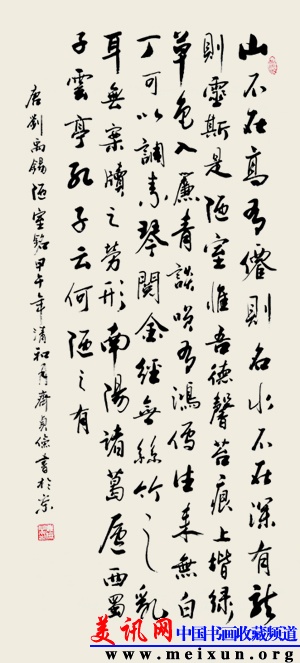 山不在高有僊則名水不在深有龍
則靈斯是陋室惟吾德馨苔痕上楷綠
草色入簾青談唉有鴻儒往来無白
丁可以調素琴閱金經無絲竹之乱
耳無案牘之勞形南陽諸葛廬西蜀
子雲亭孔子云何陋之有
唐劉禹錫陋室銘甲午年清和月齋貞俤書於京
美讯网中国书画收藏频道
www.meixun.org